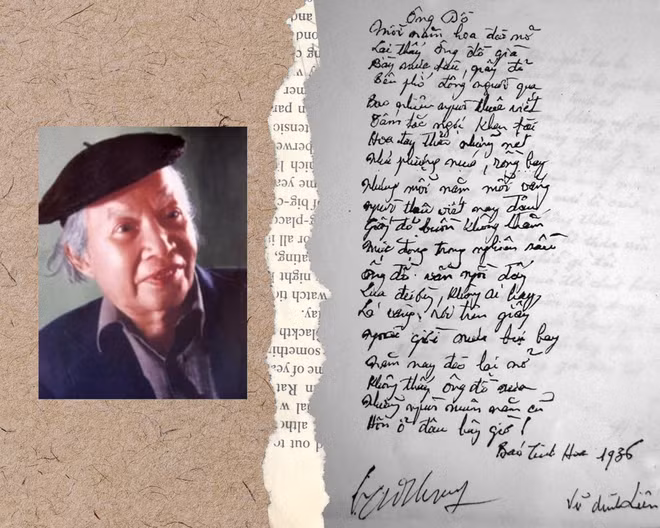 Ông Đồ
Mỗi năm hoa đào nở
Lại thấy ông đồ già
Bày mực tàu, giấy đỏ
Bên phố đông người qua
Bao nhiêu người thuê viết
Tấm tắc ngợi khen tài
Hoa tay thảo những nét
Như phượng múa, rồng bay
Nhưng mỗi năm mỗi vắng
Người thuê viết nay đâu
Giấy đỏ buồn không thắm
Mực đọng trong nghiên sầu
Ông đồ vẫn ngồi đấy
Qua đường, không ai hay
Lá vàng, rơi trên giấy
Ngoài giời mưa bụi bay
Năm nay đào lại nở
Không thấy ông đồ xưa
Những người muôn năm cũ
Hồn ở đâu bây giờ!
Báo Tinh Hoa 1936
Vũ Đình Liên